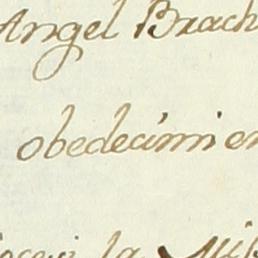 Angel Brach
obedecimien
la